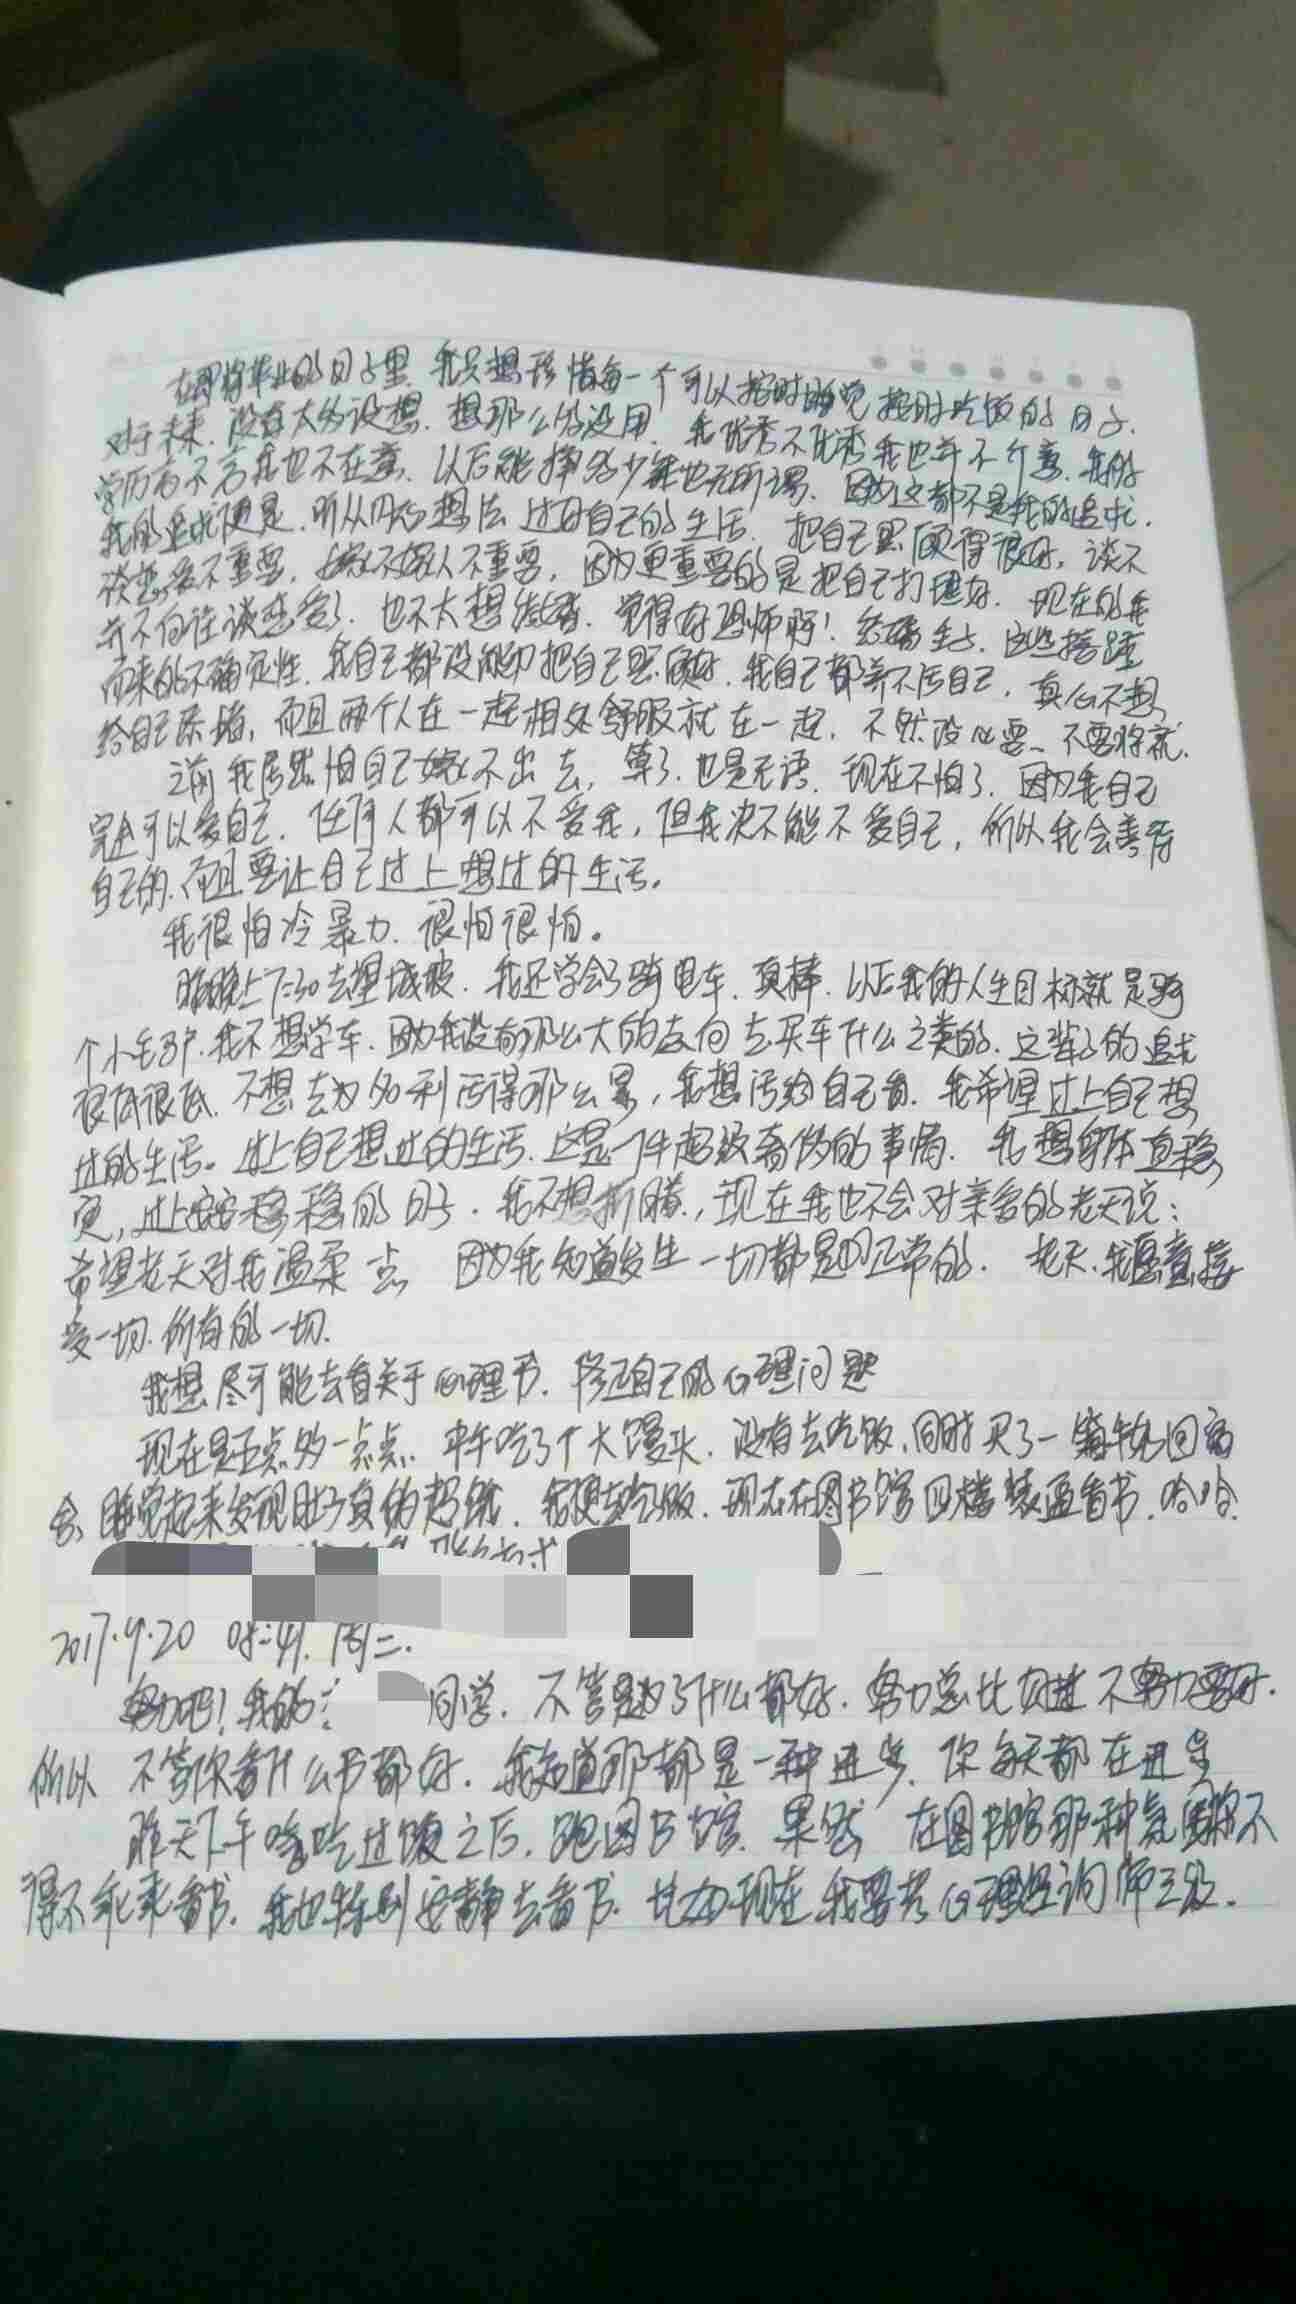 在即将毕业的日子里,我只想珍惜每一个可以按时睡觉按时吃饭的日子.
对于未来.没有太多设想.想那么多没用.我优秀不优秀我也并不介意.我的
学历高不高我也不在意.以后能挣多少钱也无所谓.因为这都不是我的追求.
我的追求便是.听从内心想法.过好自己的生活.把自己照顾得很好,谈不
谈恋爱不重要,嫁不嫁人不重要,因为更重要的是把自己打理好.现在的我
并不向往谈恋爱了.也不太想结婚.觉得好恐怖啊!结婚生子.这些接踵
而来的不确定性.我自己都没能力把自己照顾好.我自己都养不活自己,真心不想
给自己添堵,而且两个人在一起相处舒服就在一起.不然没必要.不要将就.
之前我居然怕自己嫁不出去,算了.也是无语.现在不怕了.因为我自己
完全可以爱自己.任何人都可以不爱我,但我决不能不爱自己,所以我会善待
自己的.而且要让自己过上想过的生活.
我很怕冷暴力.很怕很怕。
昨晚上7:30去望城坡.我还学会了骑电车.真棒.以后我的人生目标就是骑
个小毛驴.我不想学车.因为我没有那么大的志向去买车什么之类的.这辈子的追求
很低很低.不想去为名利活得那么累,我想活给自己看.我希望过上自己想
过的生活。过上自己想过的生活.这是一件超级奢侈的事情.我想身体直稳
更,过上安安稳稳的日子.我不想折腾,现在我也不会对亲爱的老天说:
希望老天对我温柔一点 因为我知道发生一切都是正常的.老天.我愿意接
受一切.所有的一切.
我想尽可能去看关于心理书.修正自己的心理问题
现在是五点多一点点.中午吃了个大馒头.没有去吃饭,同时买了一箱牛奶回宿
舍,睡觉起来发现肚子真的超饿.我便去吃饭.现在在图书馆四楼装逼看书.哈哈.
2017.9.20 08:41.周二.
努力吧!我的 同学.不管是为了什么都好.努力总比 不努力要好.
所以 不管你看什么书都好.我知道那都是一种进步.你每天都在进步
昨天下午 吃过饭之后,跑图书馆.果然 在图书馆那种氛围你不
得不乖乖看书.我也特别安静去看书. 现在我要考心理咨询师三级.